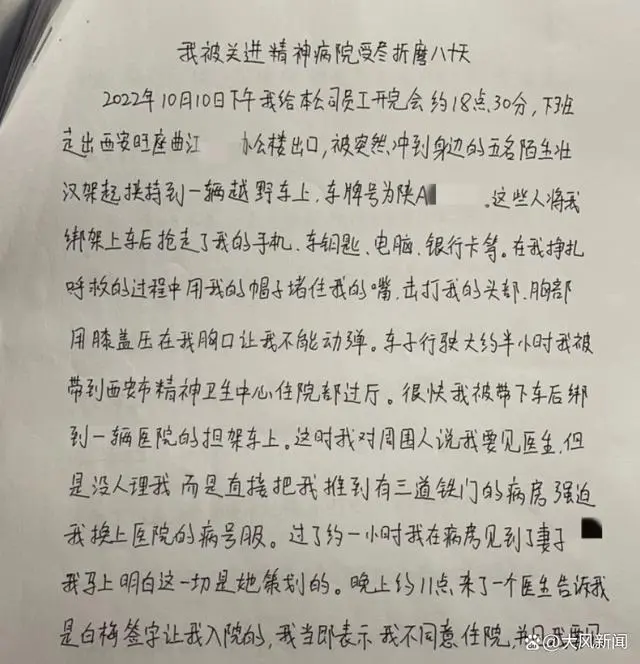 我被关进精神病院受尽折磨八十天
2022年10月10日下午我给本公司员工开完会约18点30分,下班
走出西安旺座曲江 办公楼出口,被突然冲到身边的五名陌生壮
汉架起挟持到一辆越野车上,车牌号为陕A 。这些人将我
绑架上车后抢走了我的手机、车钥匙、电脑、银行卡等。在我挣扎
呼救的过程中用我的帽子堵住我的嘴,击打我的头部、胸部
用膝盖压在我胸口让我不能动弹。车子行驶大约半小时我被
带到西安市精神卫生中心住院部过厅。很快我被带下车后绑
到一辆医院的担架车上。这时我对周围人说我要见医生,但
是没人理我 而是直接把我推到有三道铁门的病房 强迫
我换上医院的病号服。过了约一小时我在病房见到了妻子
我马上明白这一切是她策划的。晚上约11点来了一个医生告诉我
是白梅签字让我入院的,我当即表示我不同意住院,
@大风新闻